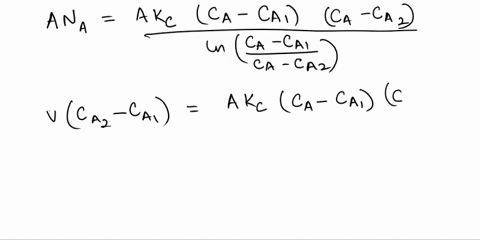 AN_A = AK_C (C_A − C_A1) (C_A − C_A2)
ln ( C_A − C_A1 / C_A − C_A2 )
V (C_A2 − C_A1) = AK_C (C_A − C_A1) (C